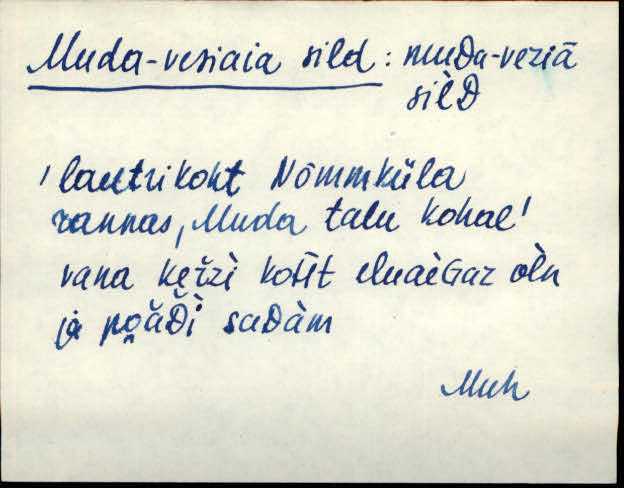 Muda-vesiaia sild : muDa-veziā
sìlD
'lautrikoht Nõmmküla
rannas, Muda talu kohal'
vana keižì koht eluaèGaz òln
ja pǫ̆ăĐì saDàm
Muh